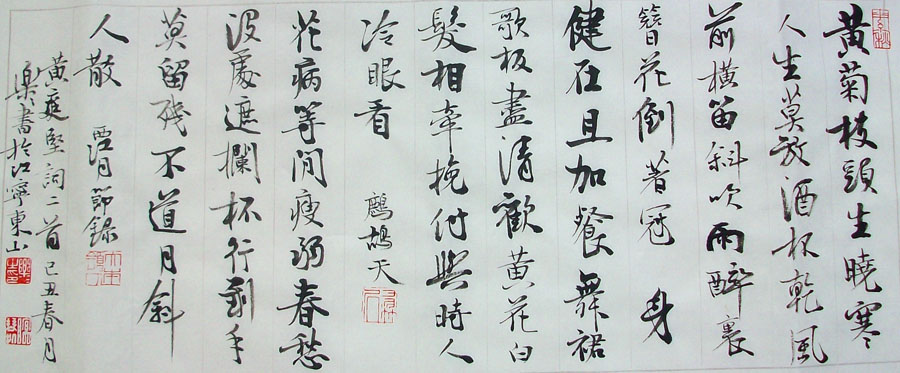 黄菊枝頭生曉寒
人生莫放酒杯乾風
前橫笛斜吹雨醉裏
簪花倒著冠 身
健在且加餐舞裙
歌板盡清歡黄花白
髮相牽挽付與時人
冷眼看 鷓鴣天
花病等閒瘦弱春愁
没處遮攔杯行到手
莫留殘不道月斜
人散 西江月節錄
黄庭堅詞二首 己丑春月
樂書於江寧東山